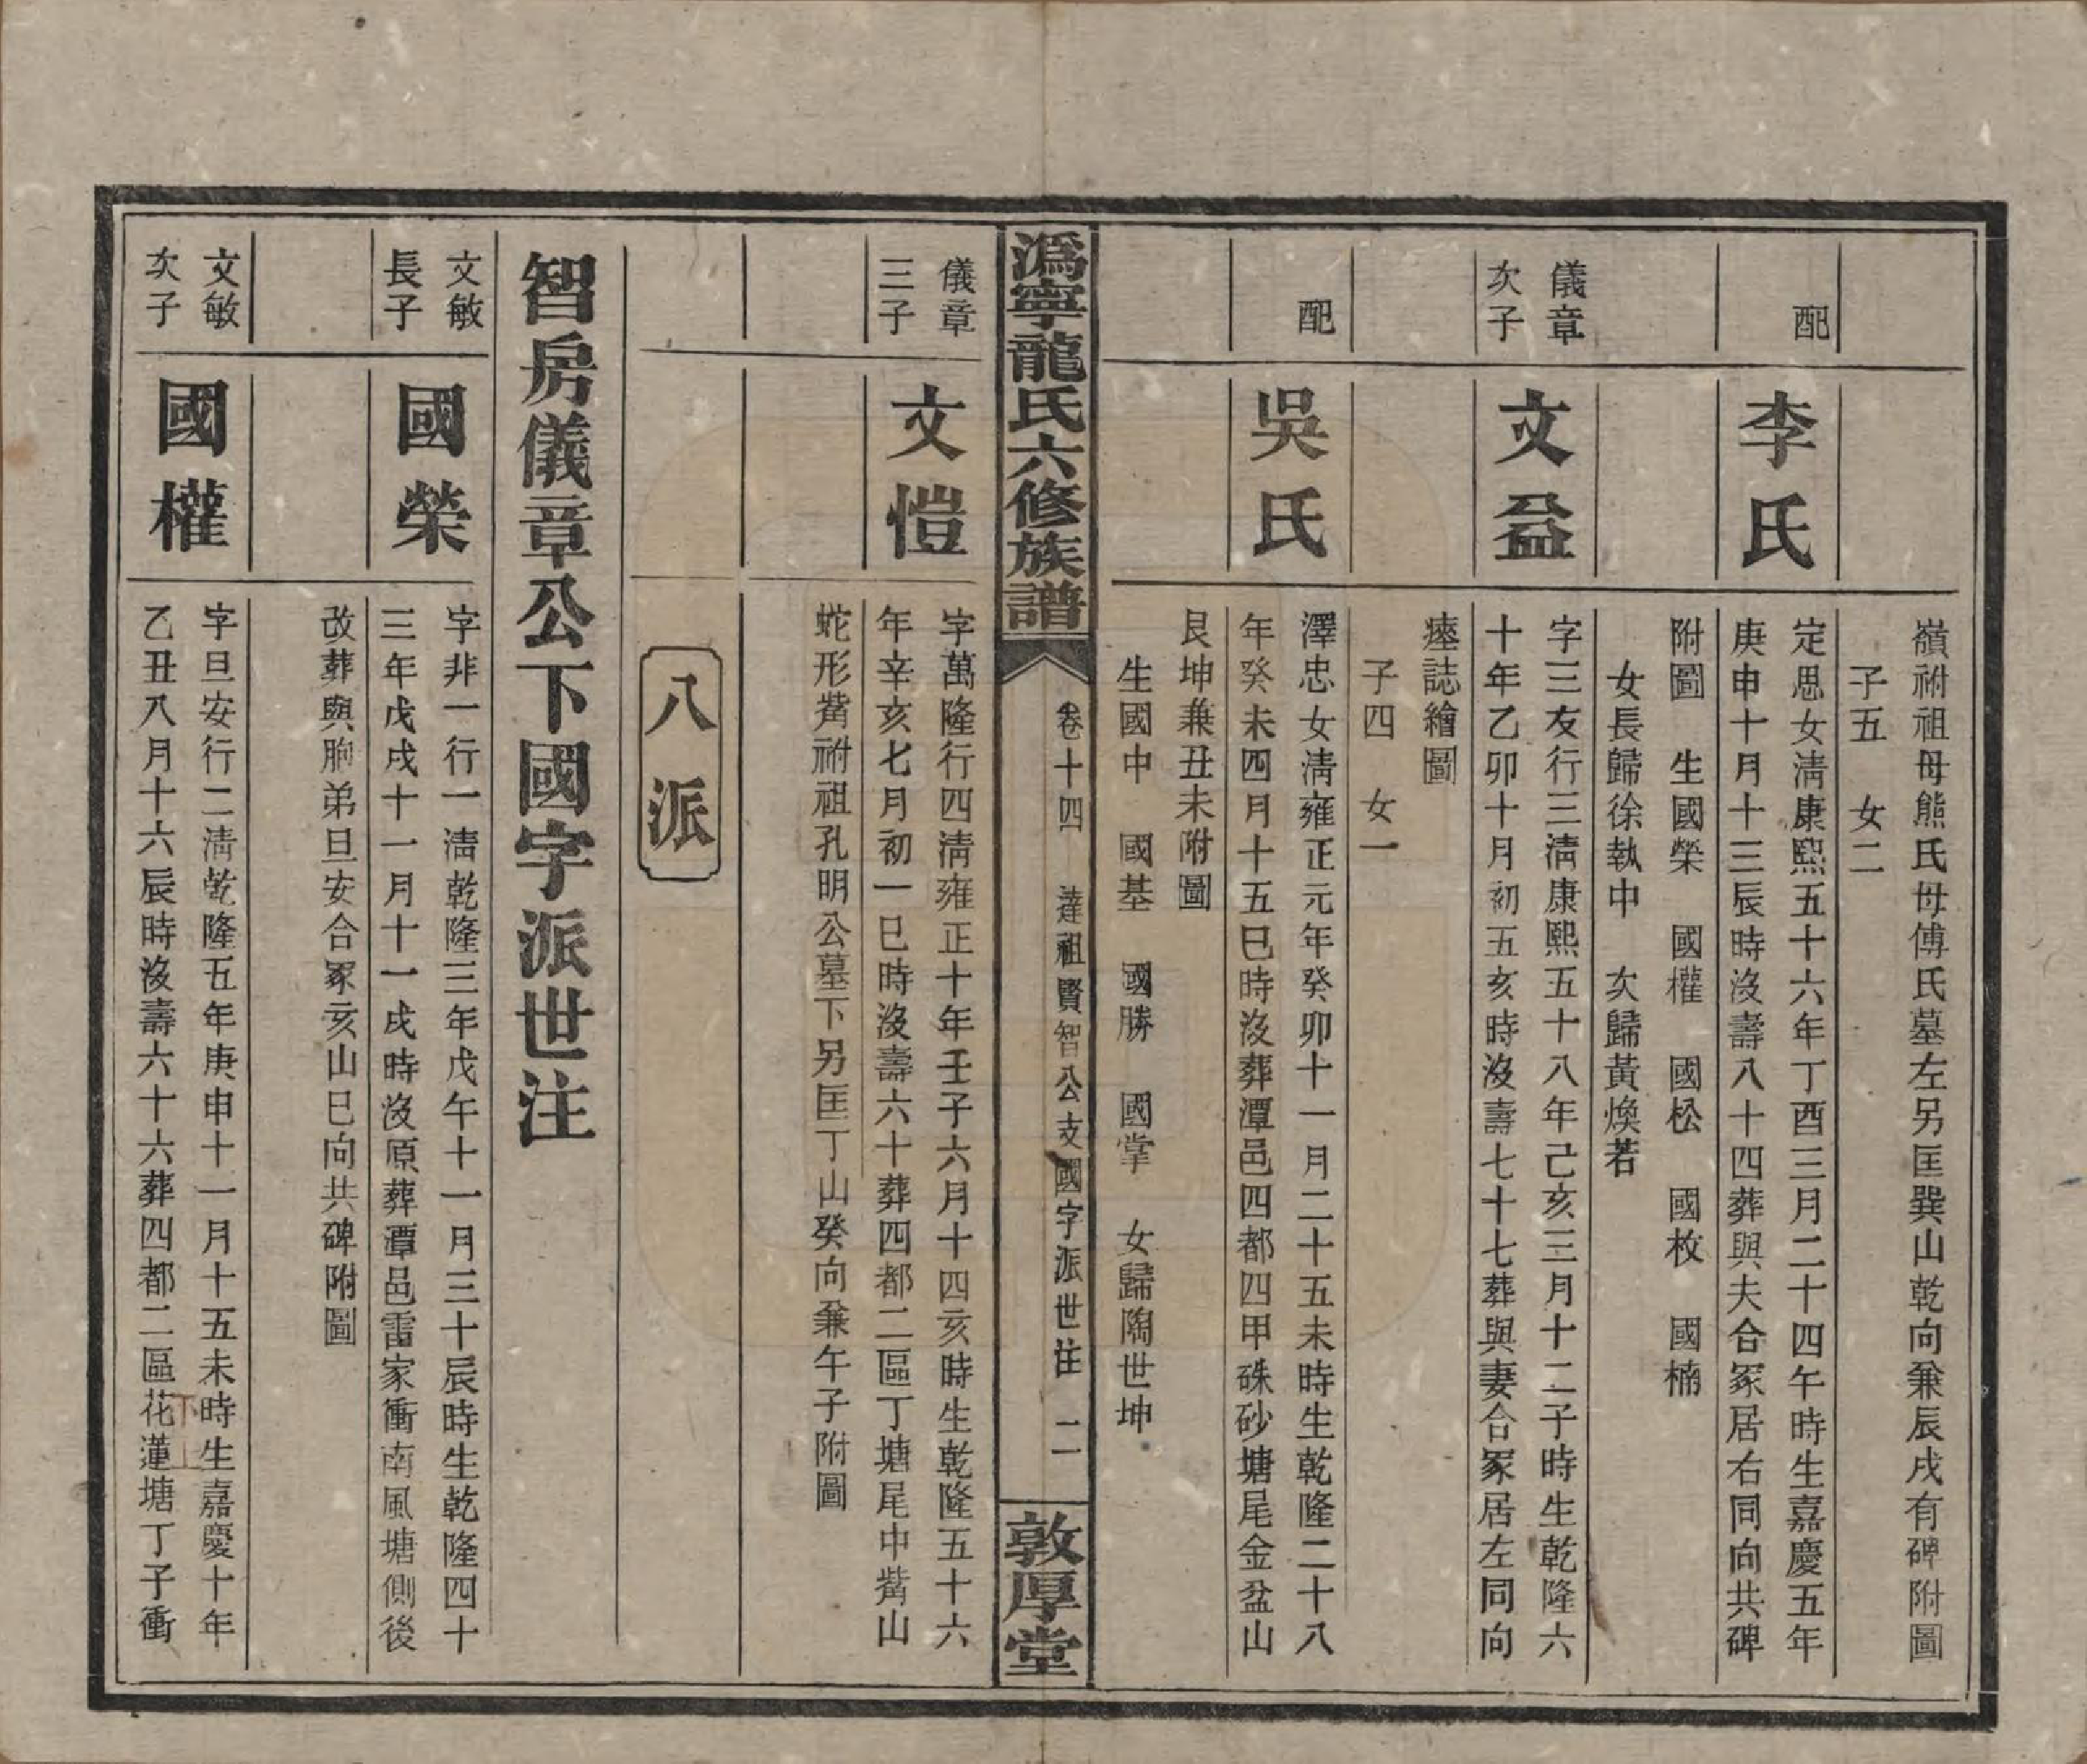 嶺祔祖母熊氏母傅氏墓左另匡巽山乾向兼辰戌有碑附圖
子五　女二
配
李氏
定思女清康熙五十六年丁酉三月二十四午時生嘉慶五年
庚申十月十三辰時沒壽八十四葬與夫合冢居右同向共碑
附圖　生國榮　國權　國松　國枚　國楠
女長歸徐執中　次歸黃煥若
儀章
次子
文益
字三友行三清康熙五十八年己亥三月十二子時生乾隆六
十年乙卯十月初五亥時沒壽七十七葬與妻合冢居左同向
瘞誌繪圖
子四　女一
配
吳氏
澤忠女清雍正元年癸卯十一月二十五未時生乾隆二十八
年癸未四月十五巳時沒葬潭邑四都四甲硃砂塘尾金盆山
艮坤兼丑未附圖
生國中　國基　國勝　國掌　女歸陶世坤
溈寧龍氏六修族譜
卷十四　達祖賢智公支國字派世注　二
敦厚堂
儀章
三子
文愷
字萬隆行四清雍正十年壬子六月十四亥時生乾隆五十六
年辛亥七月初一巳時沒壽六十葬四都二區丁塘尾中嘴山
蛇形嘴祔祖孔明公墓下另匡丁山癸向兼午子附圖
八派
智房儀章公下國字派世注
文敏
長子
國榮
字非一行一清乾隆三年戊午十一月三十辰時生乾隆四十
三年戊戌十一月十一戌時沒原葬潭邑雷家衝南風塘側後
改葬與胞弟旦安合冢亥山巳向共碑附圖
文敏
次子
國權
字旦安行二清乾隆五年庚申十一月十五未時生嘉慶十年
乙丑八月十六辰時沒壽六十六葬四都二區花蓮塘丁子衝